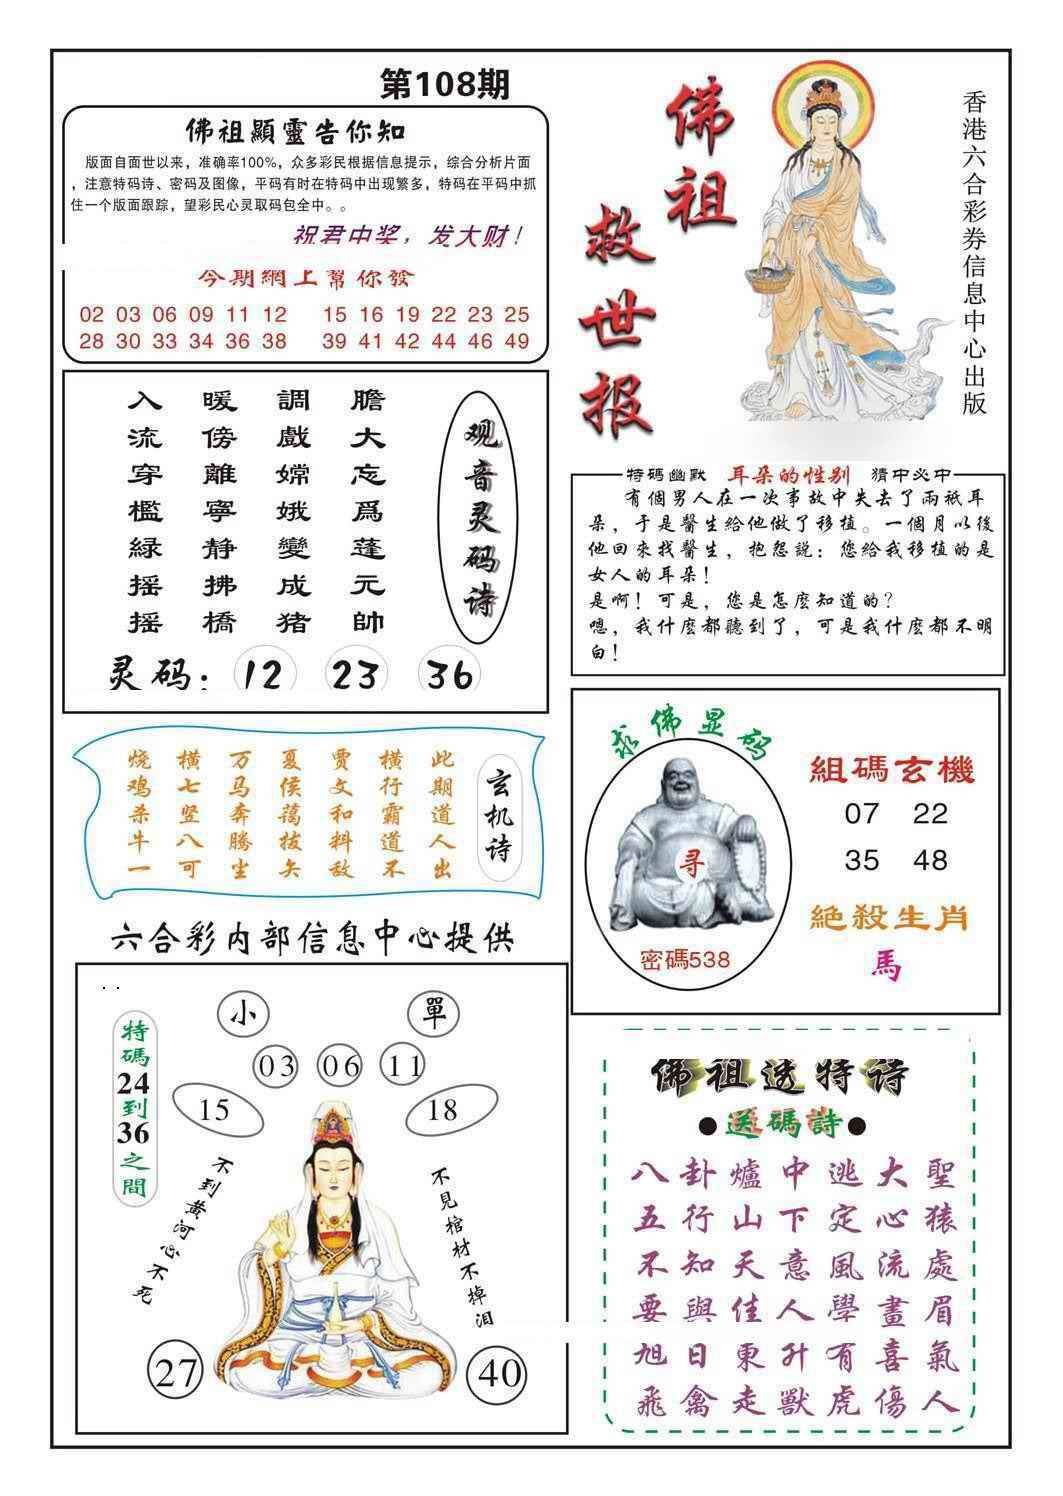 第108期
佛祖顯靈告你知
版面自面世以来，准确率100%，众多彩民根据信息提示，综合分析片面
，注意特码诗、密码及图像，平码有时在特码中出现繁多，特码在平码中抓
住一个版面跟踪，望彩民心灵取码包全中。。
祝君中奖，发大财！
今期網上幫你發
02 03 06 09 11 12 15 16 19 22 23 25
28 30 33 34 36 38 39 41 42 44 46 49
佛祖
救世报
香港六合彩券信息中心出版
观音灵码诗
膽大忘爲蓬元帥
調戲嫦娥變成猪
暖傍離寧静拂橋
入流穿檻緑摇摇
灵码：12 23 36
特碼幽默 耳朵的性别 猜中必中
有個男人在一次事故中失去了兩祇耳
朵，于是醫生給他做了移植。一個月以後
他回來找醫生，抱怨説：您給我移植的是
女人的耳朵！
是啊！可是，您是怎麽知道的？
嗯，我什麽都聽到了，可是我什麽都不明
白！
玄机诗
此期道人出
横行霸道不
贾文和料敌
夏侯蔼拔矢
万马奔腾生
横七竖八可
烧鸡杀牛一
求佛显码
寻
密碼538
組碼玄機
07 22
35 48
絶殺生肖
馬
六合彩内部信息中心提供
特碼24到36之間
小 單
03 06 11
15 18
不到黄河心不死
不見棺材不掉泪
27 40
佛祖透特诗
●送碼詩●
八卦爐中逃大聖
五行山下定心猿
不知天意風流處
要與佳人學畫眉
旭日東升有喜氣
飛禽走獸虎傷人